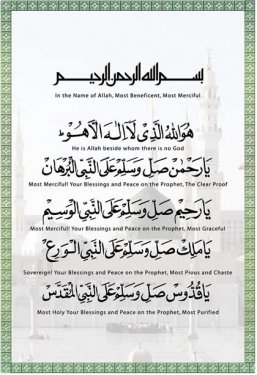 بسم الله الرحمن الرحيم
In the Name of Allah, Most Beneficent, Most Merciful
هُوَ اللهُ الَّذِي لَا إِلٰهَ إِلَّا هُوَ
He is Allah beside whom there is no God
يَا رَحْمٰنُ صَلِّ وَسَلِّمْ عَلَى النَّبِيِّ الْبُرْهَانِ
Most Merciful! Your Blessings and Peace on the Prophet, The Clear Proof
يَا رَحِيمُ صَلِّ وَسَلِّمْ عَلَى النَّبِيِّ الْوَسِيمِ
Most Merciful! Your Blessings and Peace on the Prophet, Most Graceful
يَا مَلِكُ صَلِّ وَسَلِّمْ عَلَى النَّبِيِّ الْوَرِعِ
Sovereign! Your Blessings and Peace on the Prophet, Most Pious and Chaste
يَا قُدُّوسُ صَلِّ وَسَلِّمْ عَلَى النَّبِيِّ الْمُقَدَّسِ
Most Holy Your Blessings and Peace on the Prophet, Most Purified